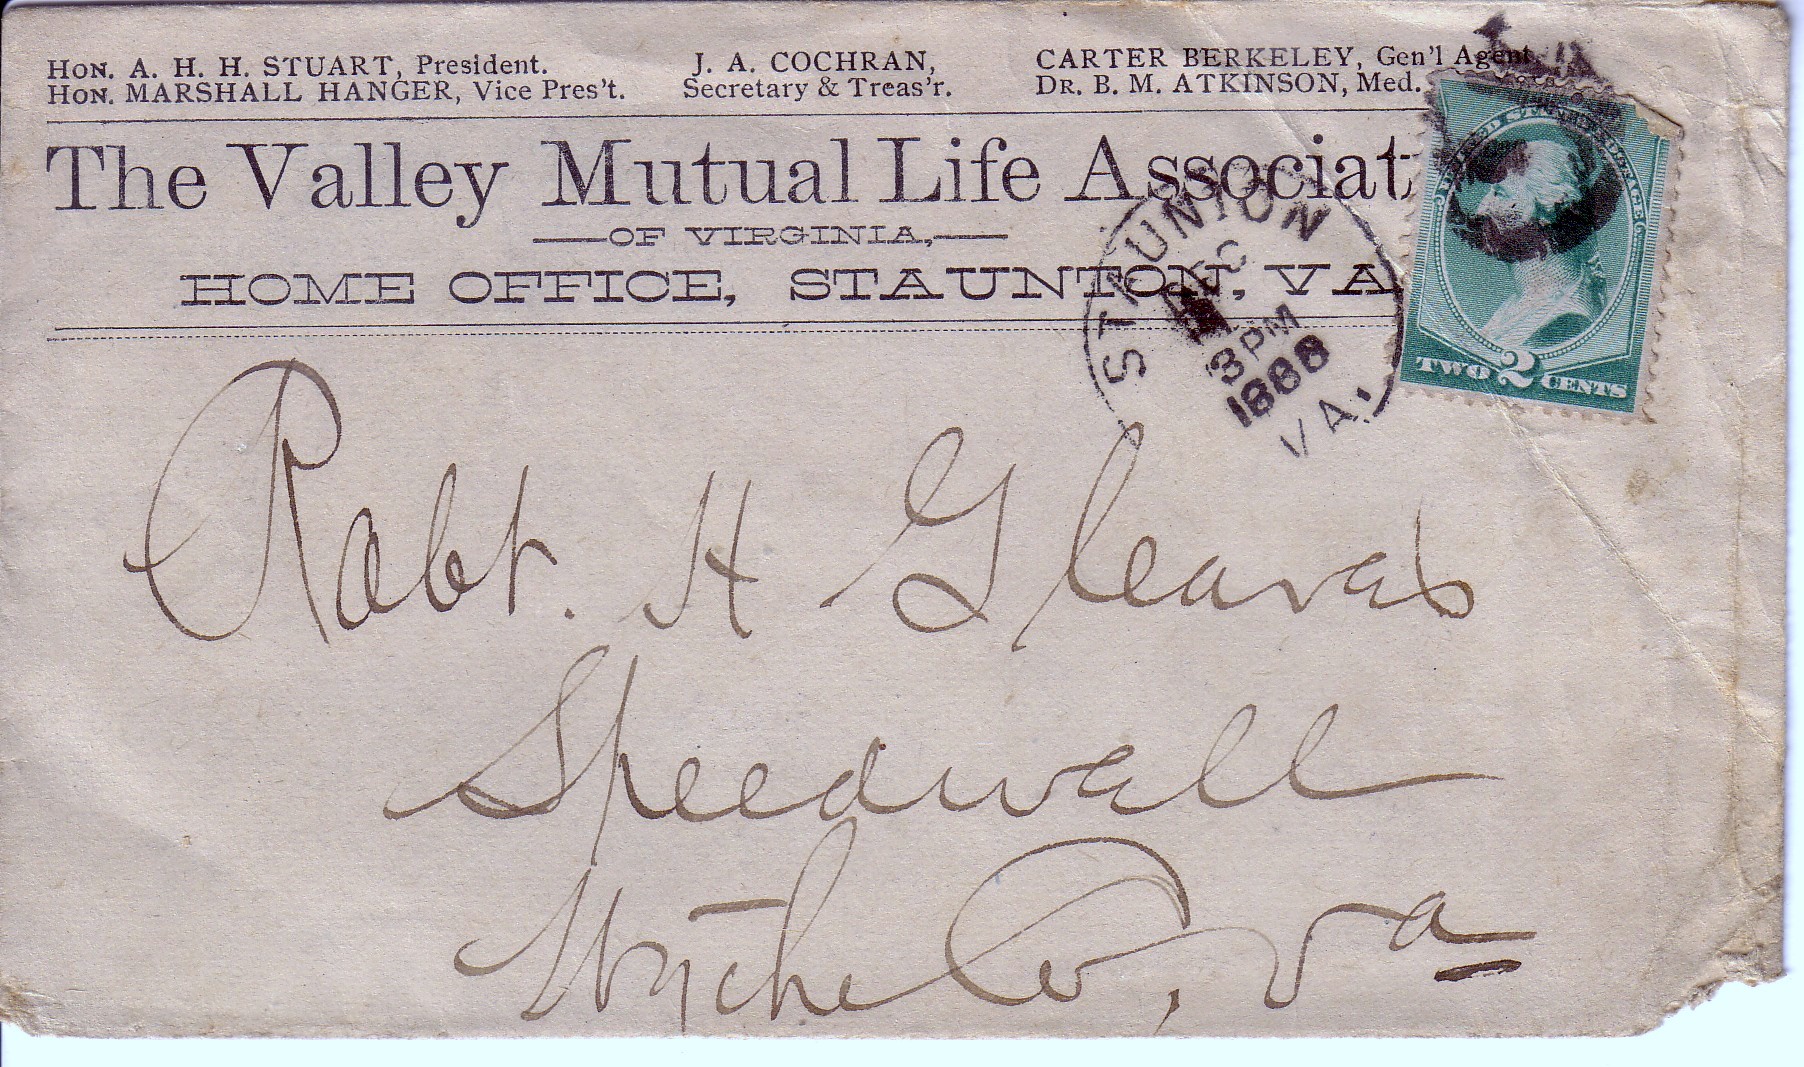 HON. A. H. H. STUART, President. J. A. COCHRAN, CARTER BERKELEY, Gen'l Agent.
HON. MARSHALL HANGER, Vice Pres't. Secretary & Treas'r. DR. B. M. ATKINSON, Med.
The Valley Mutual Life Associat
OF VIRGINIA,
HOME OFFICE, STAUNTON, VA
STAUNTON
3 PM
1888
VA.
UNITED STATES POSTAGE
TWO 2 CENTS
Robt. H Gleaves
Speedwell
Wythe Co, Va